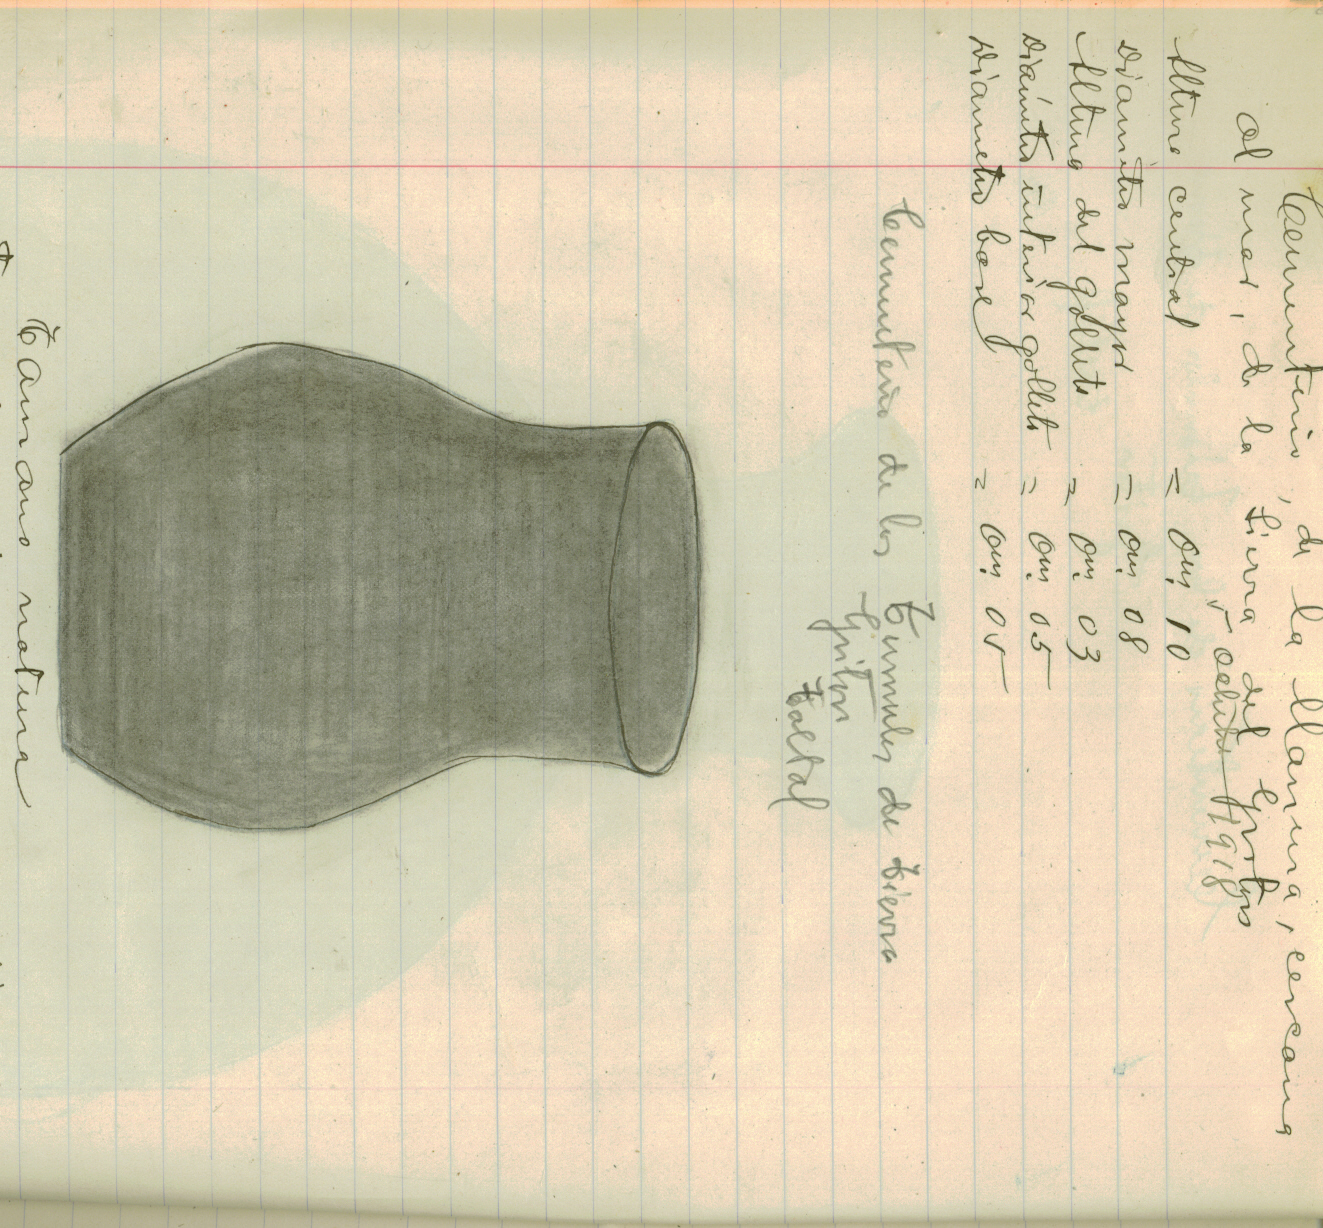 Cementerio, de la llanura, cercana
al mar, de la tierra del
octubre 1918
Altura central = 0m. 10
Diametro mayor = 0m. 08
Altura del gollete = 0m. 03
Diametro interior gollete = 0m. 05
Diametro base = 0m. 05
Cementerio de los Tumulos de tierra
Taltal
Tamano natural